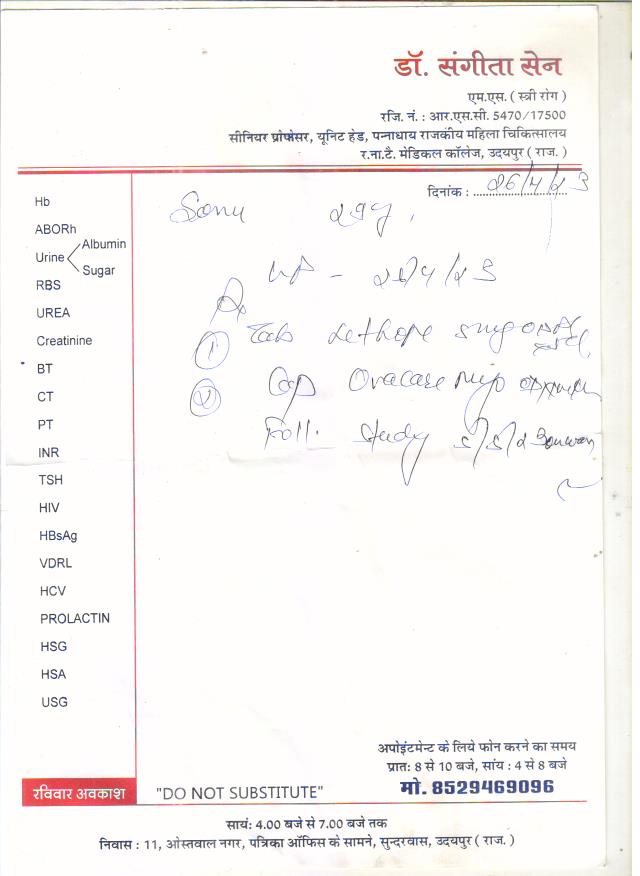 डॉ. संगीता सेन
एम.एस. ( स्त्री रोग )
रजि. नं. : आर.एस.सी. 5470/17500
सीनियर प्रोफेसर, यूनिट हेड, पन्नाधाय राजकीय महिला चिकित्सालय
र.ना.टै. मेडिकल कॉलेज, उदयपुर ( राज. )
दिनांक : 26/4/23
Hb
ABORh
Urine Albumin
Sugar
RBS
UREA
Creatinine
BT
CT
PT
INR
TSH
HIV
HBsAg
VDRL
HCV
PROLACTIN
HSG
HSA
USG
Sonu 29y
LMP - 25/4/23
Rx
① Tab 5mg
② Cap Ovacare
Foll. study 5/5/23
अपोइंटमेन्ट के लिये फोन करने का समय
प्रातः 8 से 10 बजे, सांय : 4 से 8 बजे
मो. 8529469096
रविवार अवकाश
"DO NOT SUBSTITUTE"
सायं: 4.00 बजे से 7.00 बजे तक
निवास : 11, ओस्तवाल नगर, पत्रिका ऑफिस के सामने, सुन्दरवास, उदयपुर ( राज. )